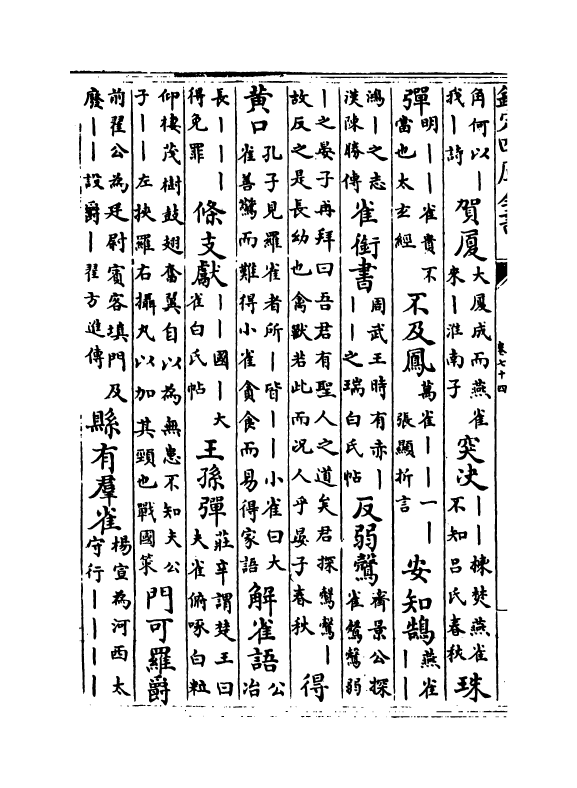 欽定四庫全書 卷七十四
角何以丨我丨詩 賀厦 大厦成而燕雀來丨淮南子 突决 丨丨棟焚燕雀不知吕氏春秋 珠
彈 明丨丨雀貴不當也太玄經 不及鳳 萬雀丨丨一丨張顯折言 安知鵠 燕雀丨丨
鴻丨之志漢陳勝傳 雀銜書 周武王時有赤丨丨丨之瑞白氏帖 反弱鷇 齊景公探雀鷇鷇弱
丨之晏子再拜曰吾君有聖人之道矣君探鷇鷇丨故反之是長幼也禽獸若此而况人乎晏子春秋 得
黄口 孔子見羅雀者所丨皆丨丨小雀曰大雀善驚而難得小雀貪食而易得家語 解雀語 公冶
長丨丨丨得免罪 條支獻 丨丨國丨大雀白氏帖 王孫彈 莊辛謂楚王曰夫雀俯啄白粒
仰棲茂樹鼓翅奮翼自以為無患不知夫公子丨丨左挾羅右攝丸以加其頸也戰國策 門可羅爵
前翟公為廷尉賓客填門及廢丨丨設爵丨翟方進傳 縣有羣雀 楊宣為河西太守行丨丨丨丨